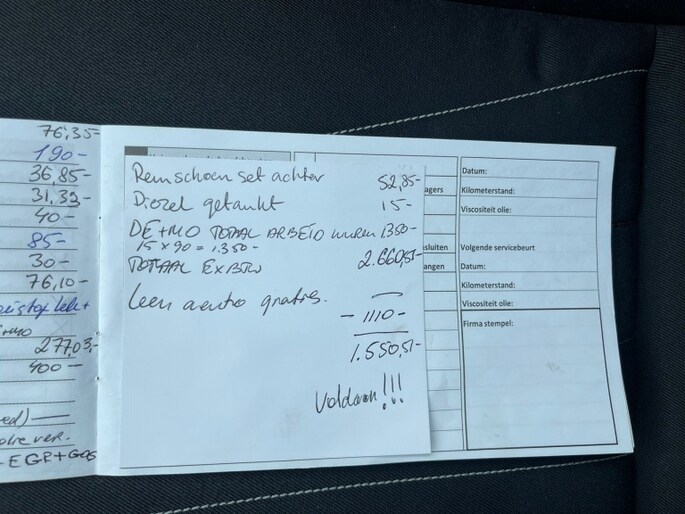 76,35-
190-
36,85-
31,39-
40-
85-
30-
76,10-
277,03,-
400-
ed)
EGR+GAS
Remschoen set achter 52,85-
Diezel getankt 15-
DE+MO TOTAAL ARBEID wuren 1350-
15 x 90 = 1.350-
TOTAAL EXBTW 2.660,51-
Leen aeuto gratis. —
- 1110-
1.550,51-
Voldaan!!!
agers
sluiten
angen
Datum:
Kilometerstand:
Viscositeit olie:
Volgende servicebeurt
Datum:
Kilometerstand:
Viscositeit olie:
Firma stempel: